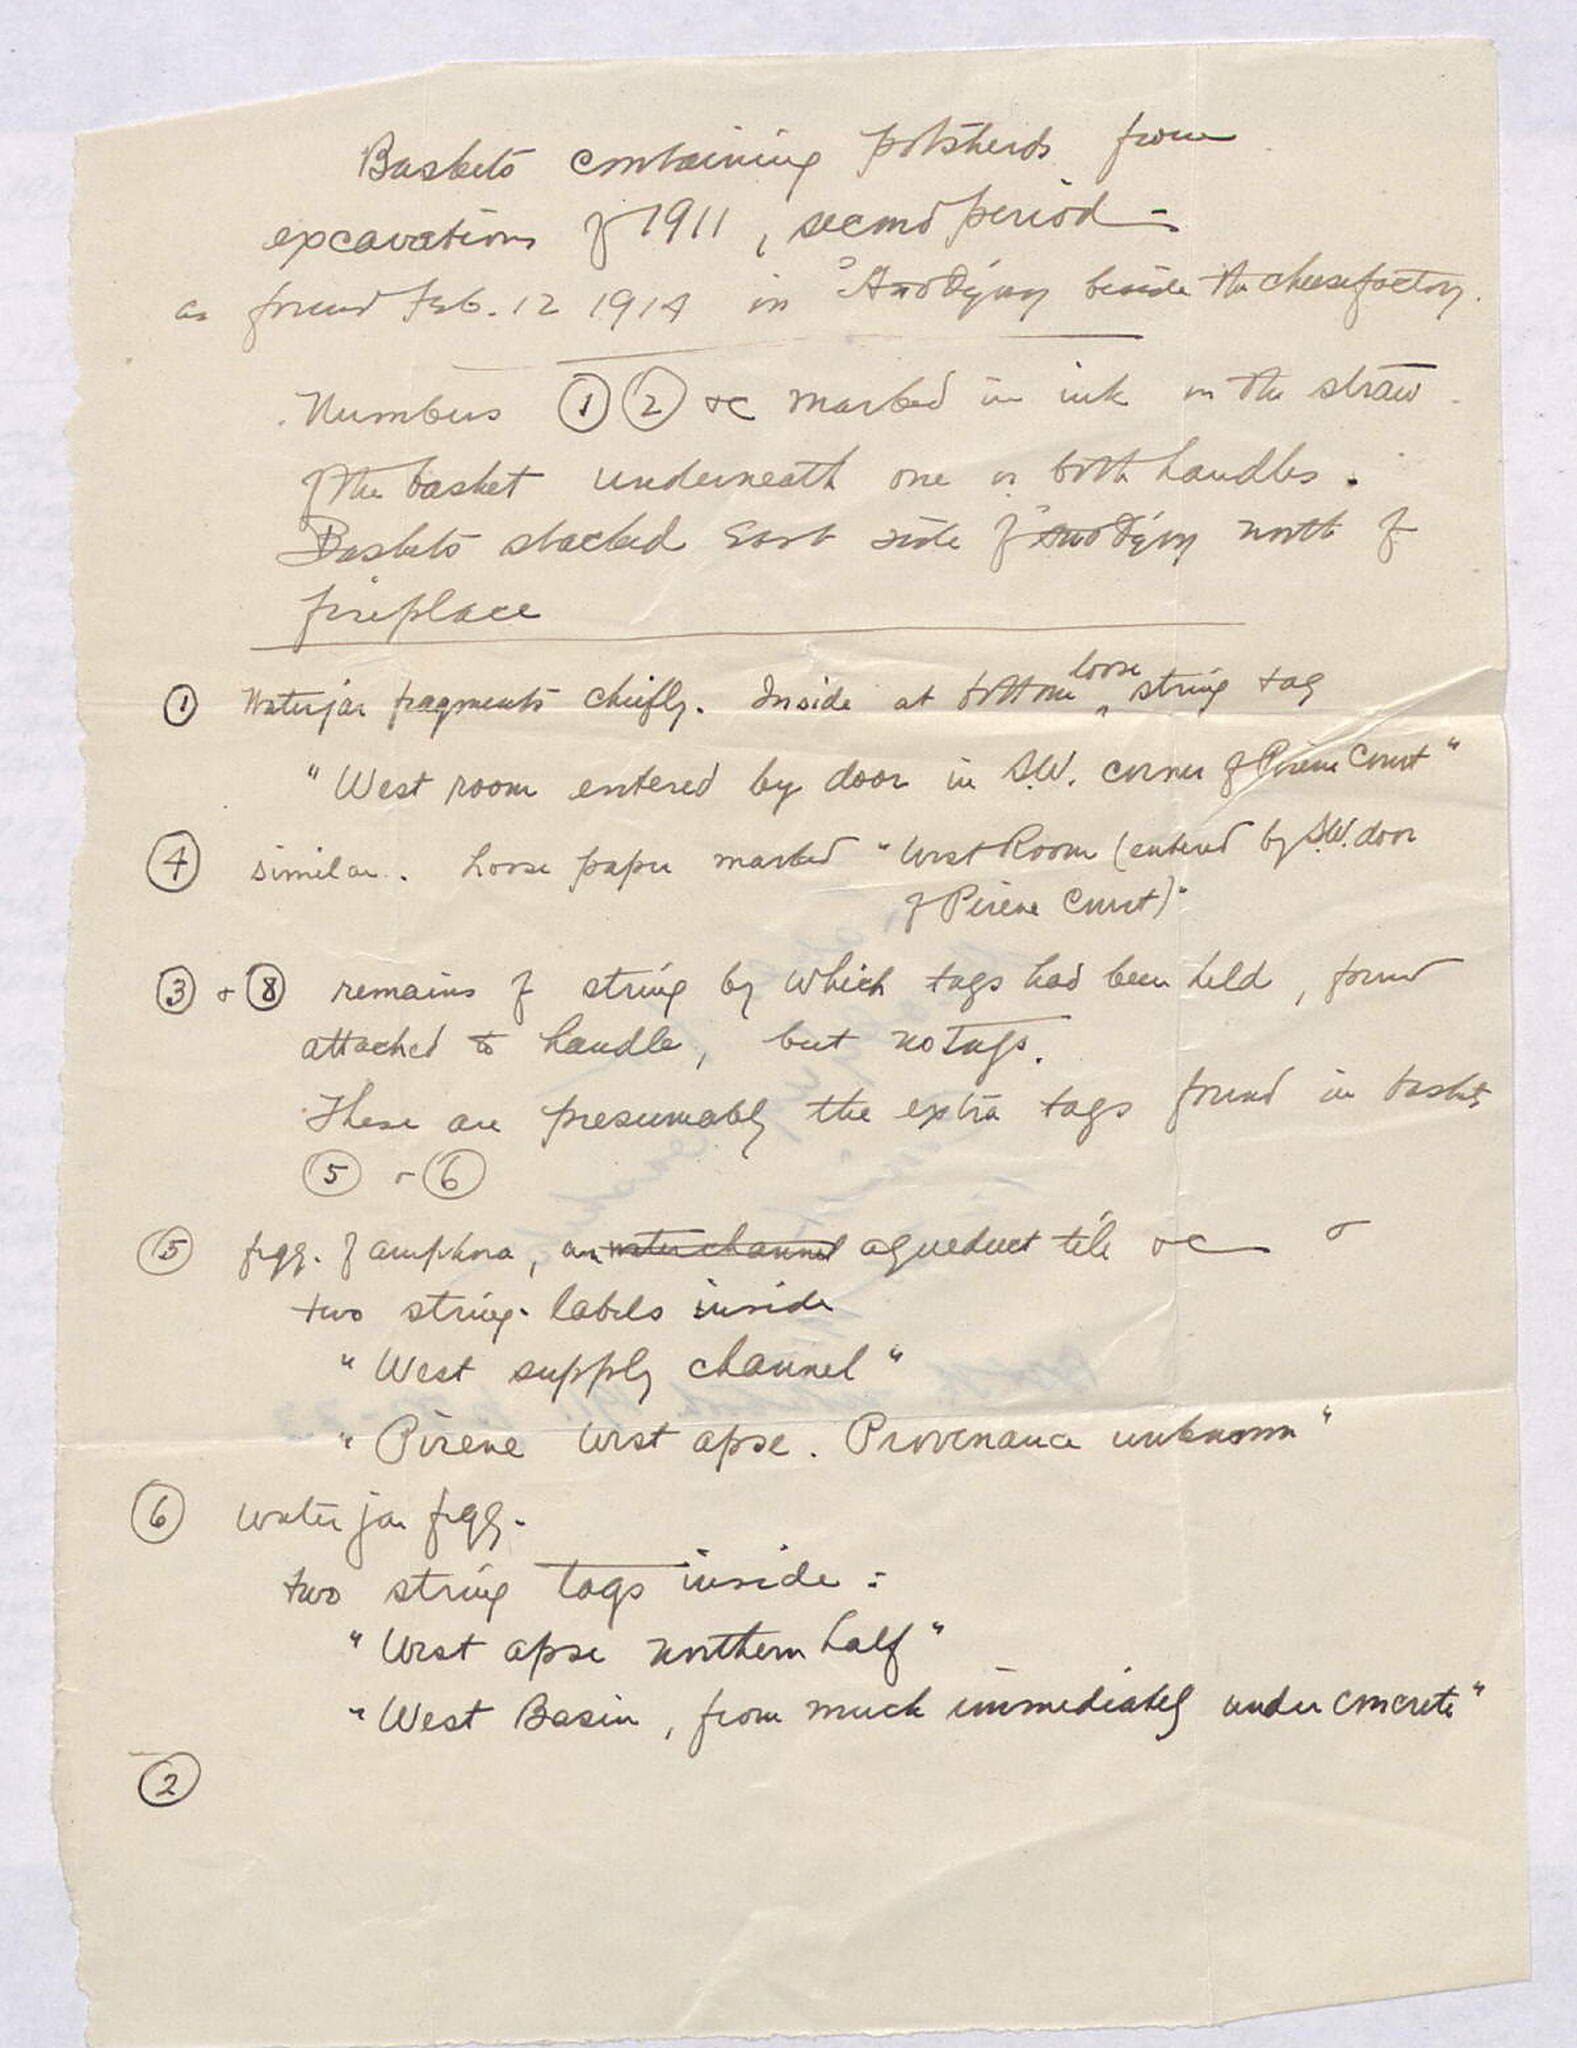 Baskets containing potsherds from
excavations of 1911, second period —
as found Feb. 12 1914 in Ἀποθήκη beside the cheesefactory.
Numbers ① ② &c marked in ink on the straw
of the basket underneath one or both handles.
Baskets stacked East side of ἀποθήκη north of
fireplace
① Waterjar fragments chiefly. Inside at bottom loose string tag
"West room entered by door in S.W. corner of Pirene Court"
④ similar. Loose paper marked "West Room (entered by S.W. door
of Pirene Court)"
③ + ⑧ remains of string by which tags had been held, found
attached to handle, but no tags.
These are presumably the extra tags found in baskets
⑤ + ⑥
⑤ frgg. of amphora, an water channel aqueduct tile &c
two string-labels inside
"West supply channel"
"Pirene West apse. Provenance unknown"
⑥ water jar frgg.
two string tags inside:
"West apse northern half"
"West Basin, from muck immediately under concrete"
②